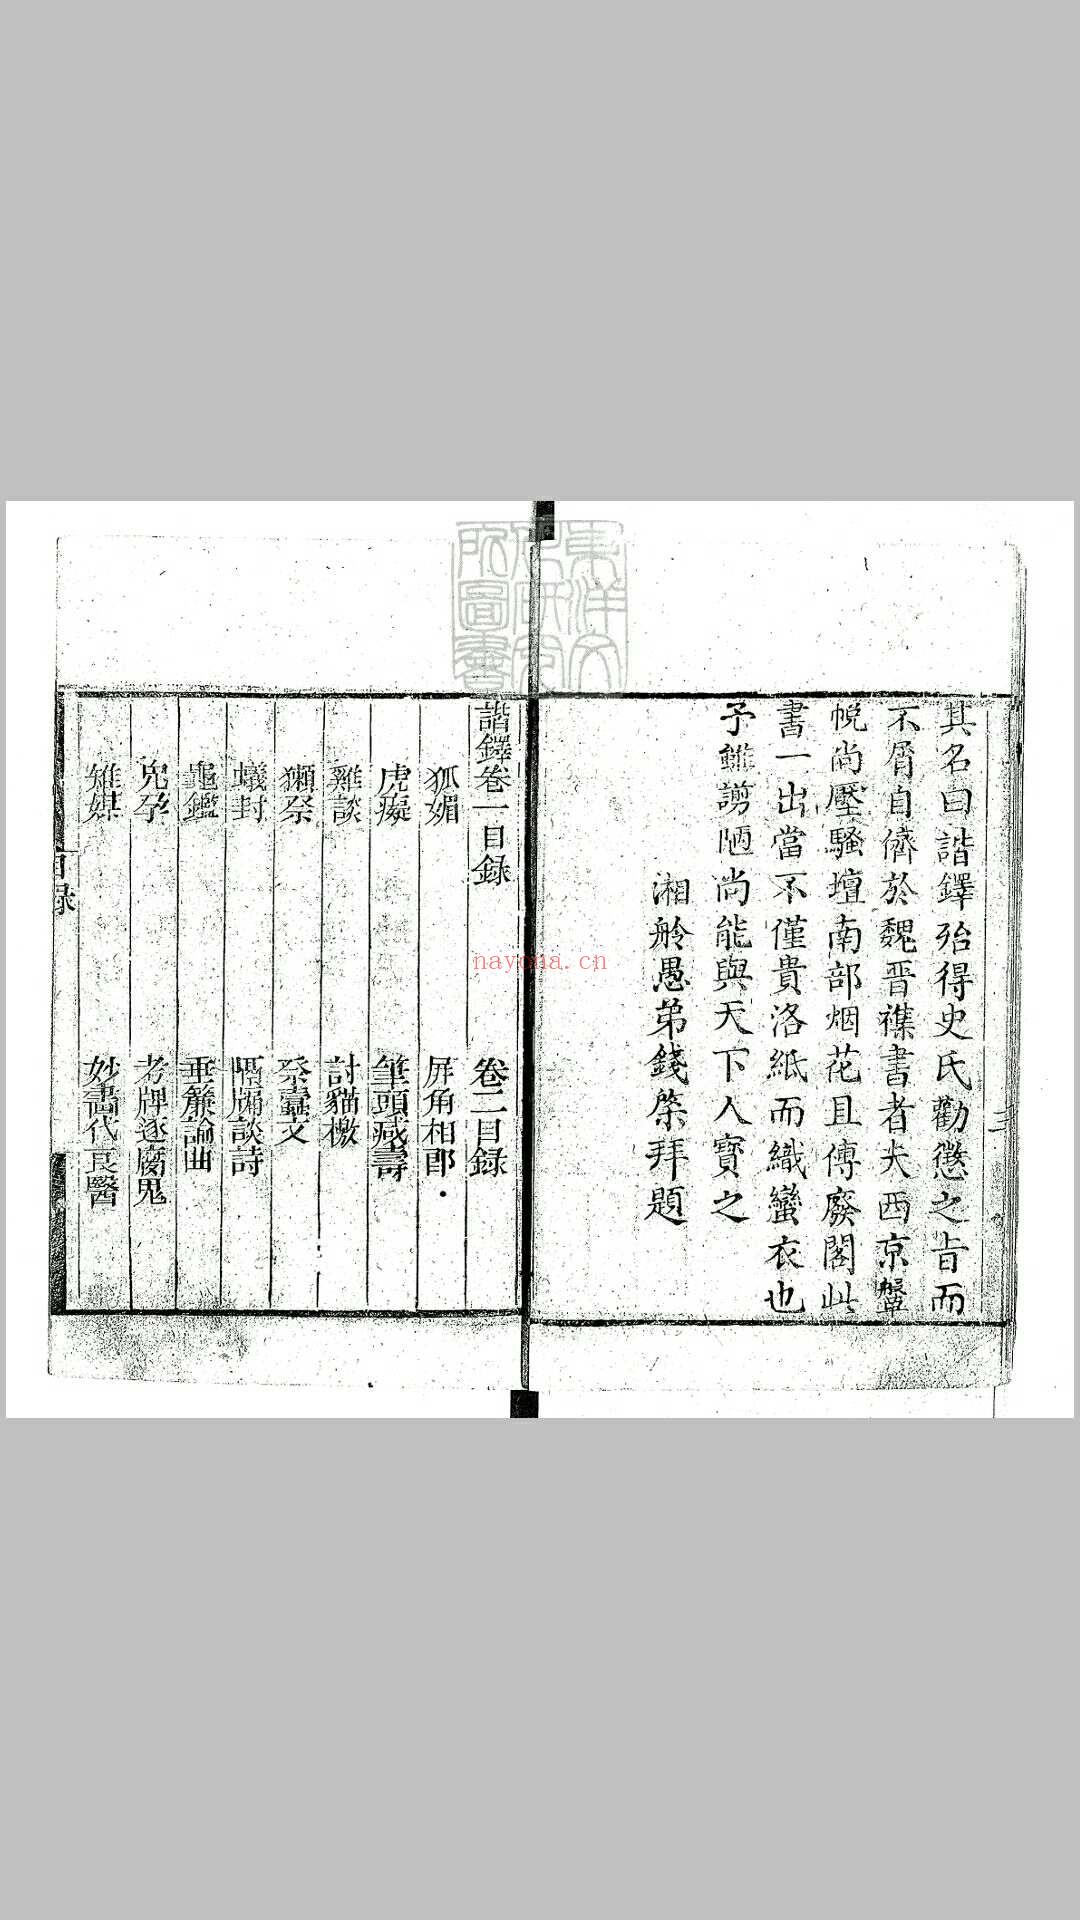 其名曰諧鐸殆得史氏勸懲之旨而
不屑自儕於魏晉襍書者夫西京鞶
帨尚壓騷壇南部烟花且傳廢閣此
書一出當不僅貴洛紙而織蠻衣也
予雖謭陋尚能與天下人寶之
湘舲愚弟錢棨拜題
諧鐸卷一目録
狐媚
虎癡
雞談
獺祭
蟻封
龜鑑
兔孕
雉媒
卷二目録
屏角相郎
筆頭減壽
討貓檄
祭蠹文
隔牖談詩
垂簾論曲
考牌逐腐鬼
妙畫代良醫
目録
東洋文化研究所圖書
nayona.cn